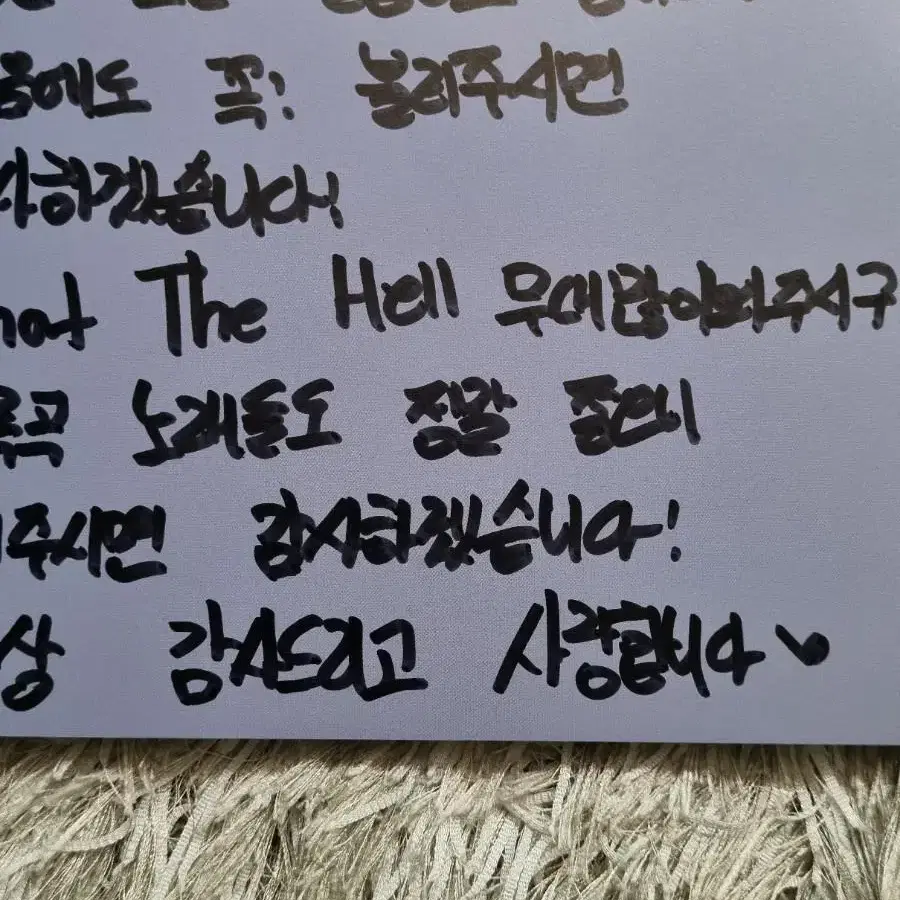 음에도 꼭! 불러주시면
사하겠습니다!
What The Hell 무대많이봐주시구
록곡 노래들도 정말 좋으니
주시면 감사하겠습니다!
상 감사드리고 사랑합니다♥